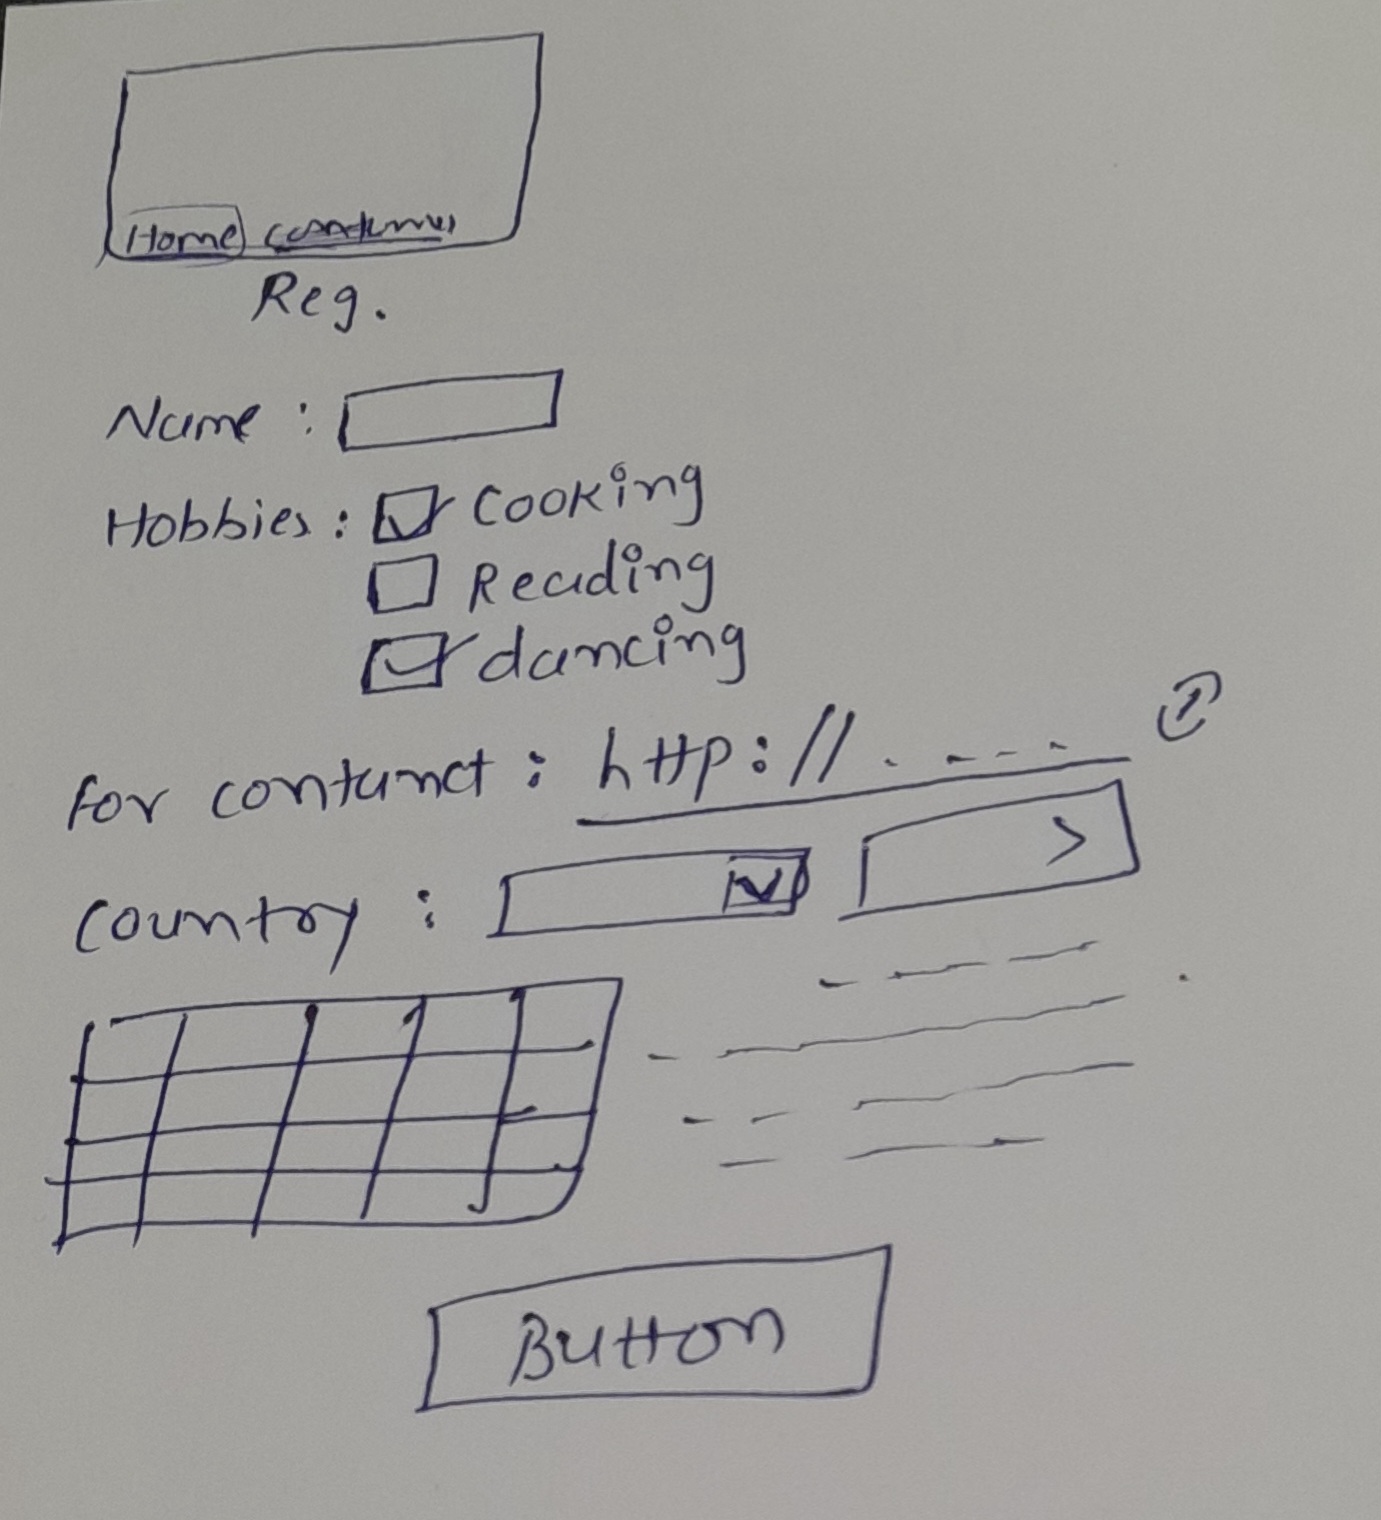 Home
Reg.
Name :
Hobbies : Cooking
Reading
dancing
For contanct : http://. ----
Country :
Button